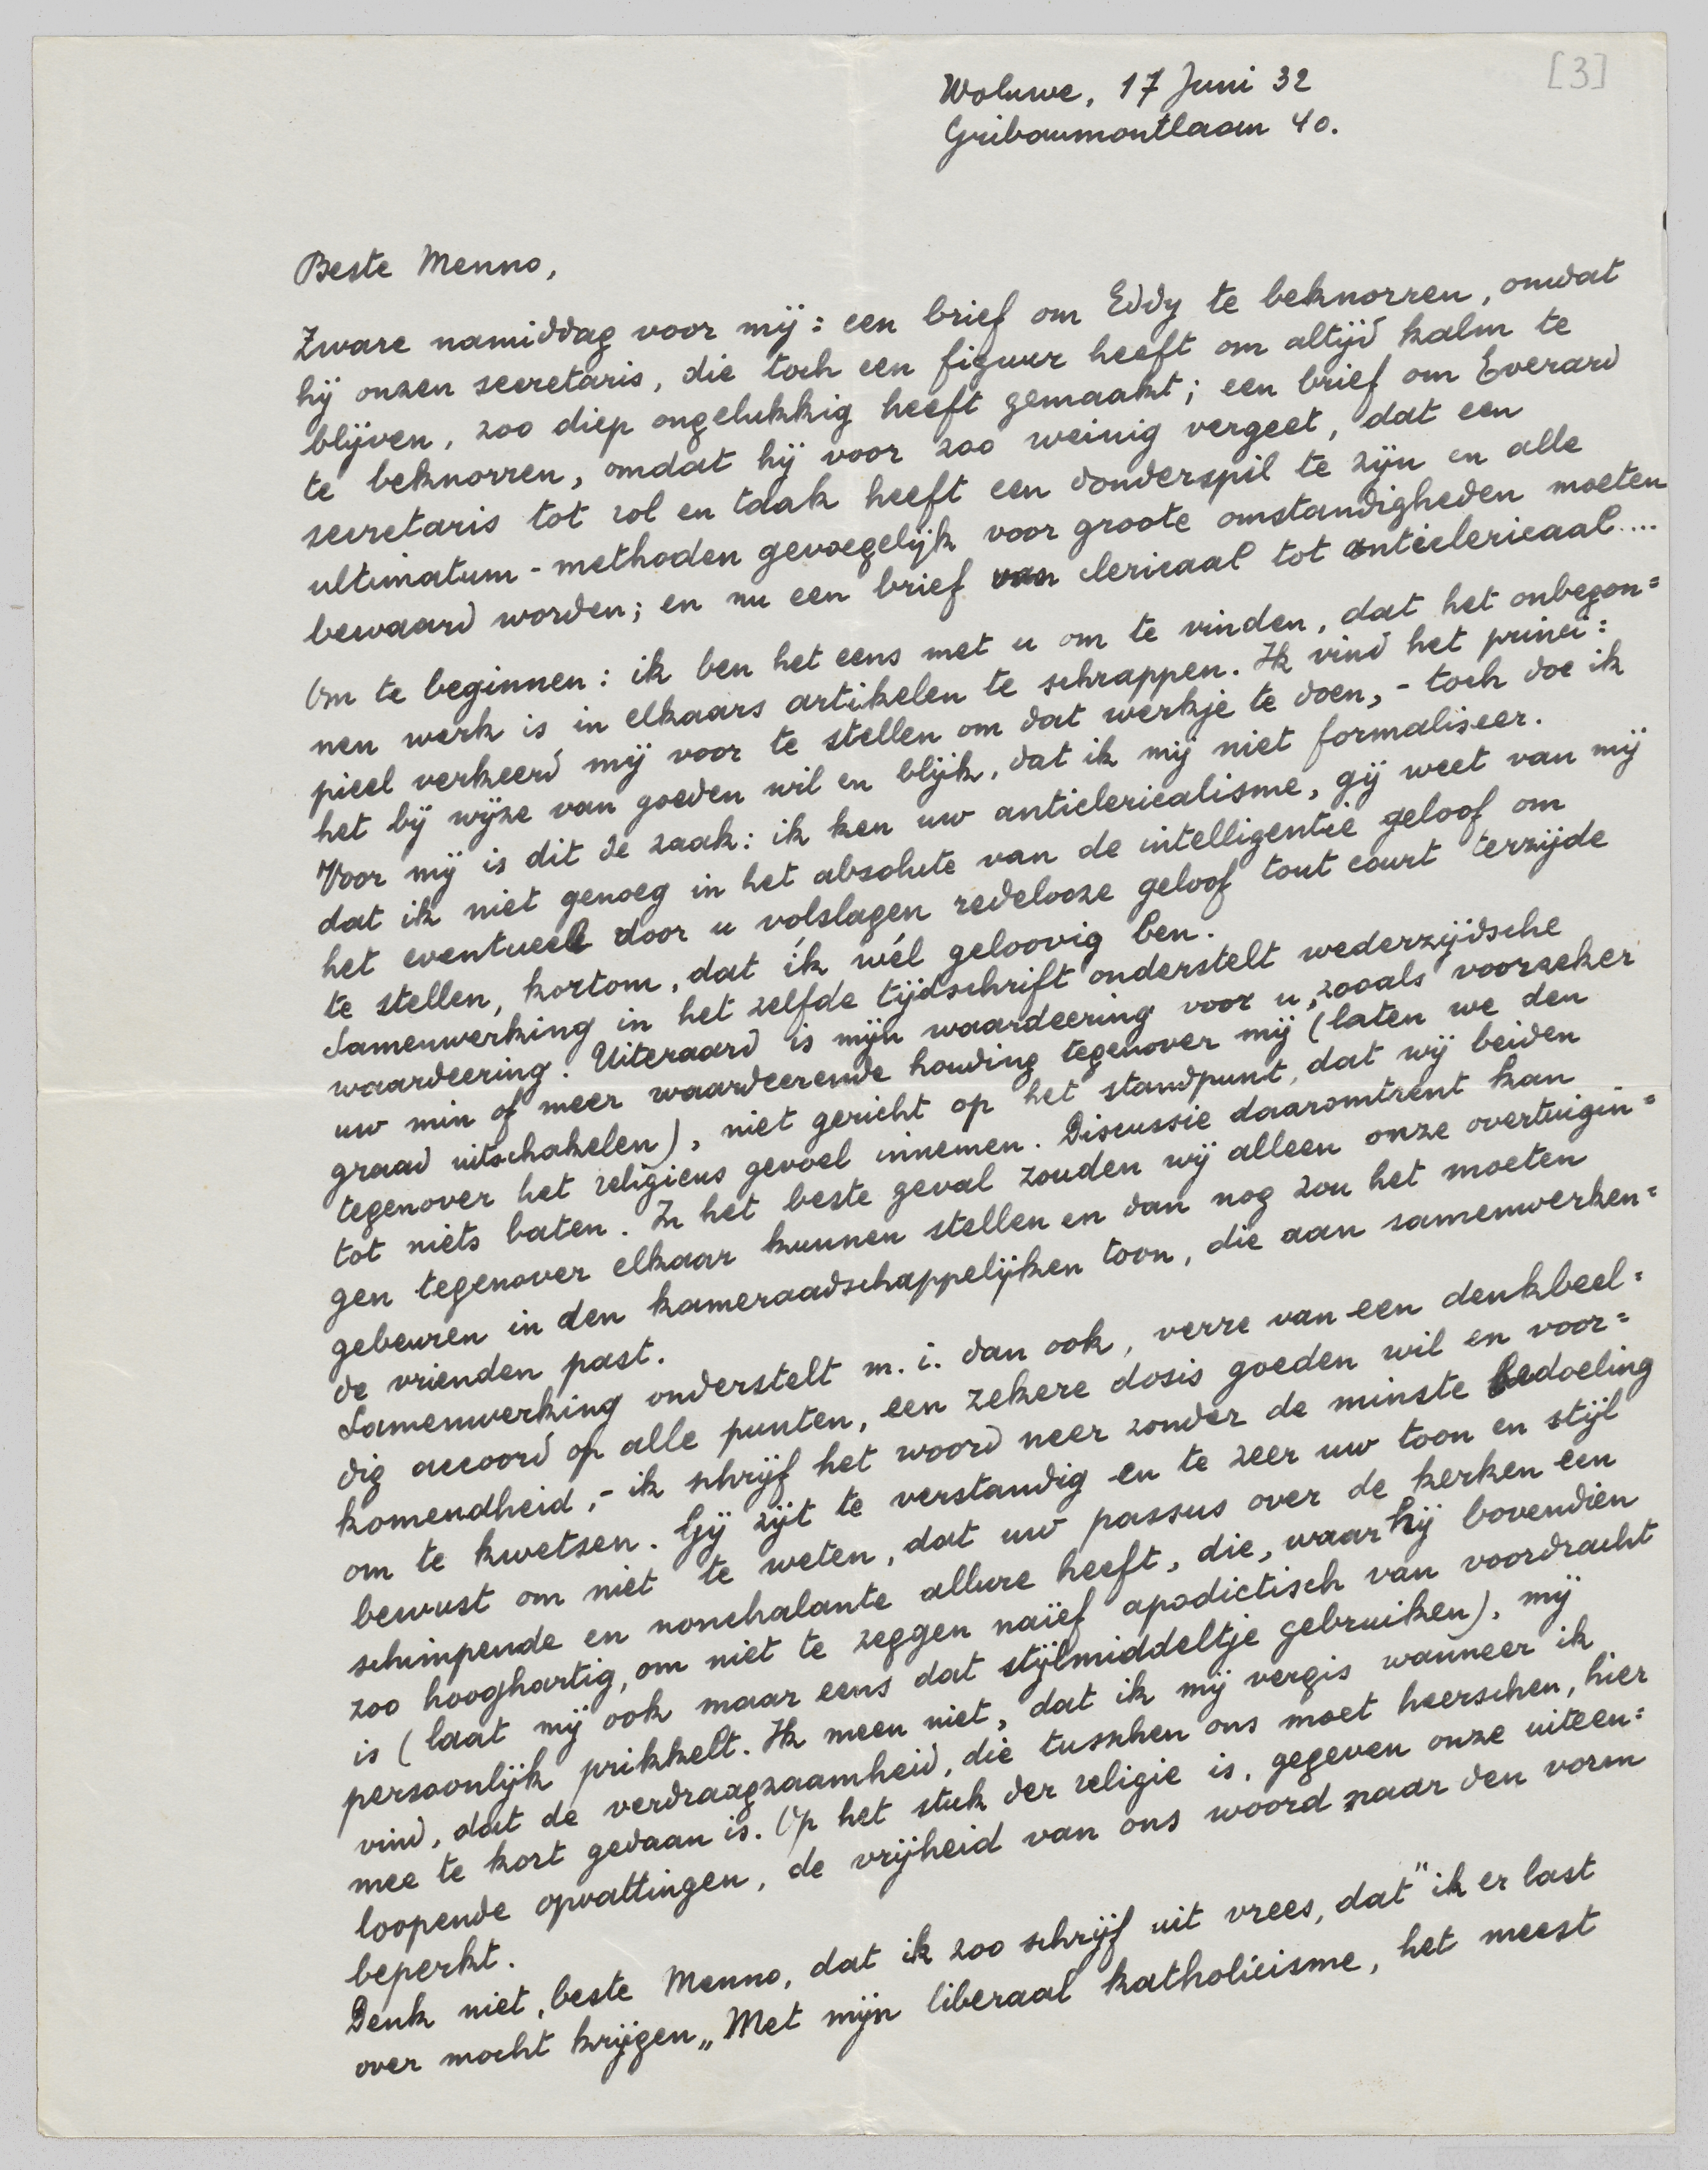 [3]
Woluwe, 17 Juni 32
Gribaumontlaan 40.
Beste Menno,
Zware namiddag voor mij: een brief om Eddy te beknorren, omdat
hij onzen secretaris, die toch een figuur heeft om altijd kalm te
blijven, zoo diep ongelukkig heeft gemaakt; een brief om Everard
te beknorren, omdat hij voor zoo weinig vergeet, dat een
secretaris tot rol en taak heeft een donderspil te zijn en alle
ultimatum-methoden gevoegelijk voor groote omstandigheden moeten
bewaard worden; en nu een brief van clericaal tot anticlericaal....
Om te beginnen: ik ben het eens met u om te vinden, dat het onbegon=
nen werk is in elkaars artikelen te schrappen. Ik vind het princi=
pieel verkeerd mij voor te stellen om dat werkje te doen,- toch doe ik
het bij wijze van goeden wil en blijk, dat ik mij niet formaliseer.
Voor mij is dit de zaak: ik ken uw anticlericalisme, gij weet van mij
dat ik niet genoeg in het absolute van de intelligentie geloof om
het eventueel door u volslagen redelooze geloof tout court terzijde
te stellen, kortom, dat ík wél geloovig ben.
Samenwerking in het zelfde tijdschrift onderstelt wederzijdsche
waardeering. Uiteraard is mijn waardeering voor u, zooals voorzeker
uw min of meer waardeerende houding tegenover mij (laten we den
graad uitschakelen), niet gericht op het standpunt, dat wij beiden
tegenover het religieus gevoel innemen. Discussie daaromtrent kan
tot niets baten. In het beste geval zouden wij alleen onze overtuigin=
gen tegenover elkaar kunnen stellen en dan nog zou het moeten
gebeuren in den kameraadschappelijken toon, die aan samenwerken=
de vrienden past.
Samenwerking onderstelt m.i. dan ook, verre van een denkbeel=
dig accoord op alle punten, een zekere dosis goeden wil en voor=
komendheid,- ik schrijf het woord neer zonder de minste bedoeling
om te kwetsen. Gij zijt te verstandig en te zeer uw toon en stijl
bewust om niet te weten, dat uw passus over de kerken een
schimpende en nonchalante allure heeft, die, waar hij bovendien
zoo hooghartig, om niet te zeggen naïef apodictisch van voordracht
is (laat mij ook maar eens dat stijlmiddeltje gebruiken), mij
persoonlijk prikkelt. Ik meen niet, dat ik mij vergis wanneer ik
vind, dat de verdraagzaamheid, die tusschen ons moet heerschen, hier
mee te kort gedaan is. Op het stuk der religie is, gegeven onze uiteen=
loopende opvattingen, de vrijheid van ons woord naar den vorm
beperkt.
Denk niet, beste Menno, dat ik zoo schrijf uit vrees, dat "ik er last
over mocht krijgen„ Met mijn liberaal katholicisme, het meest